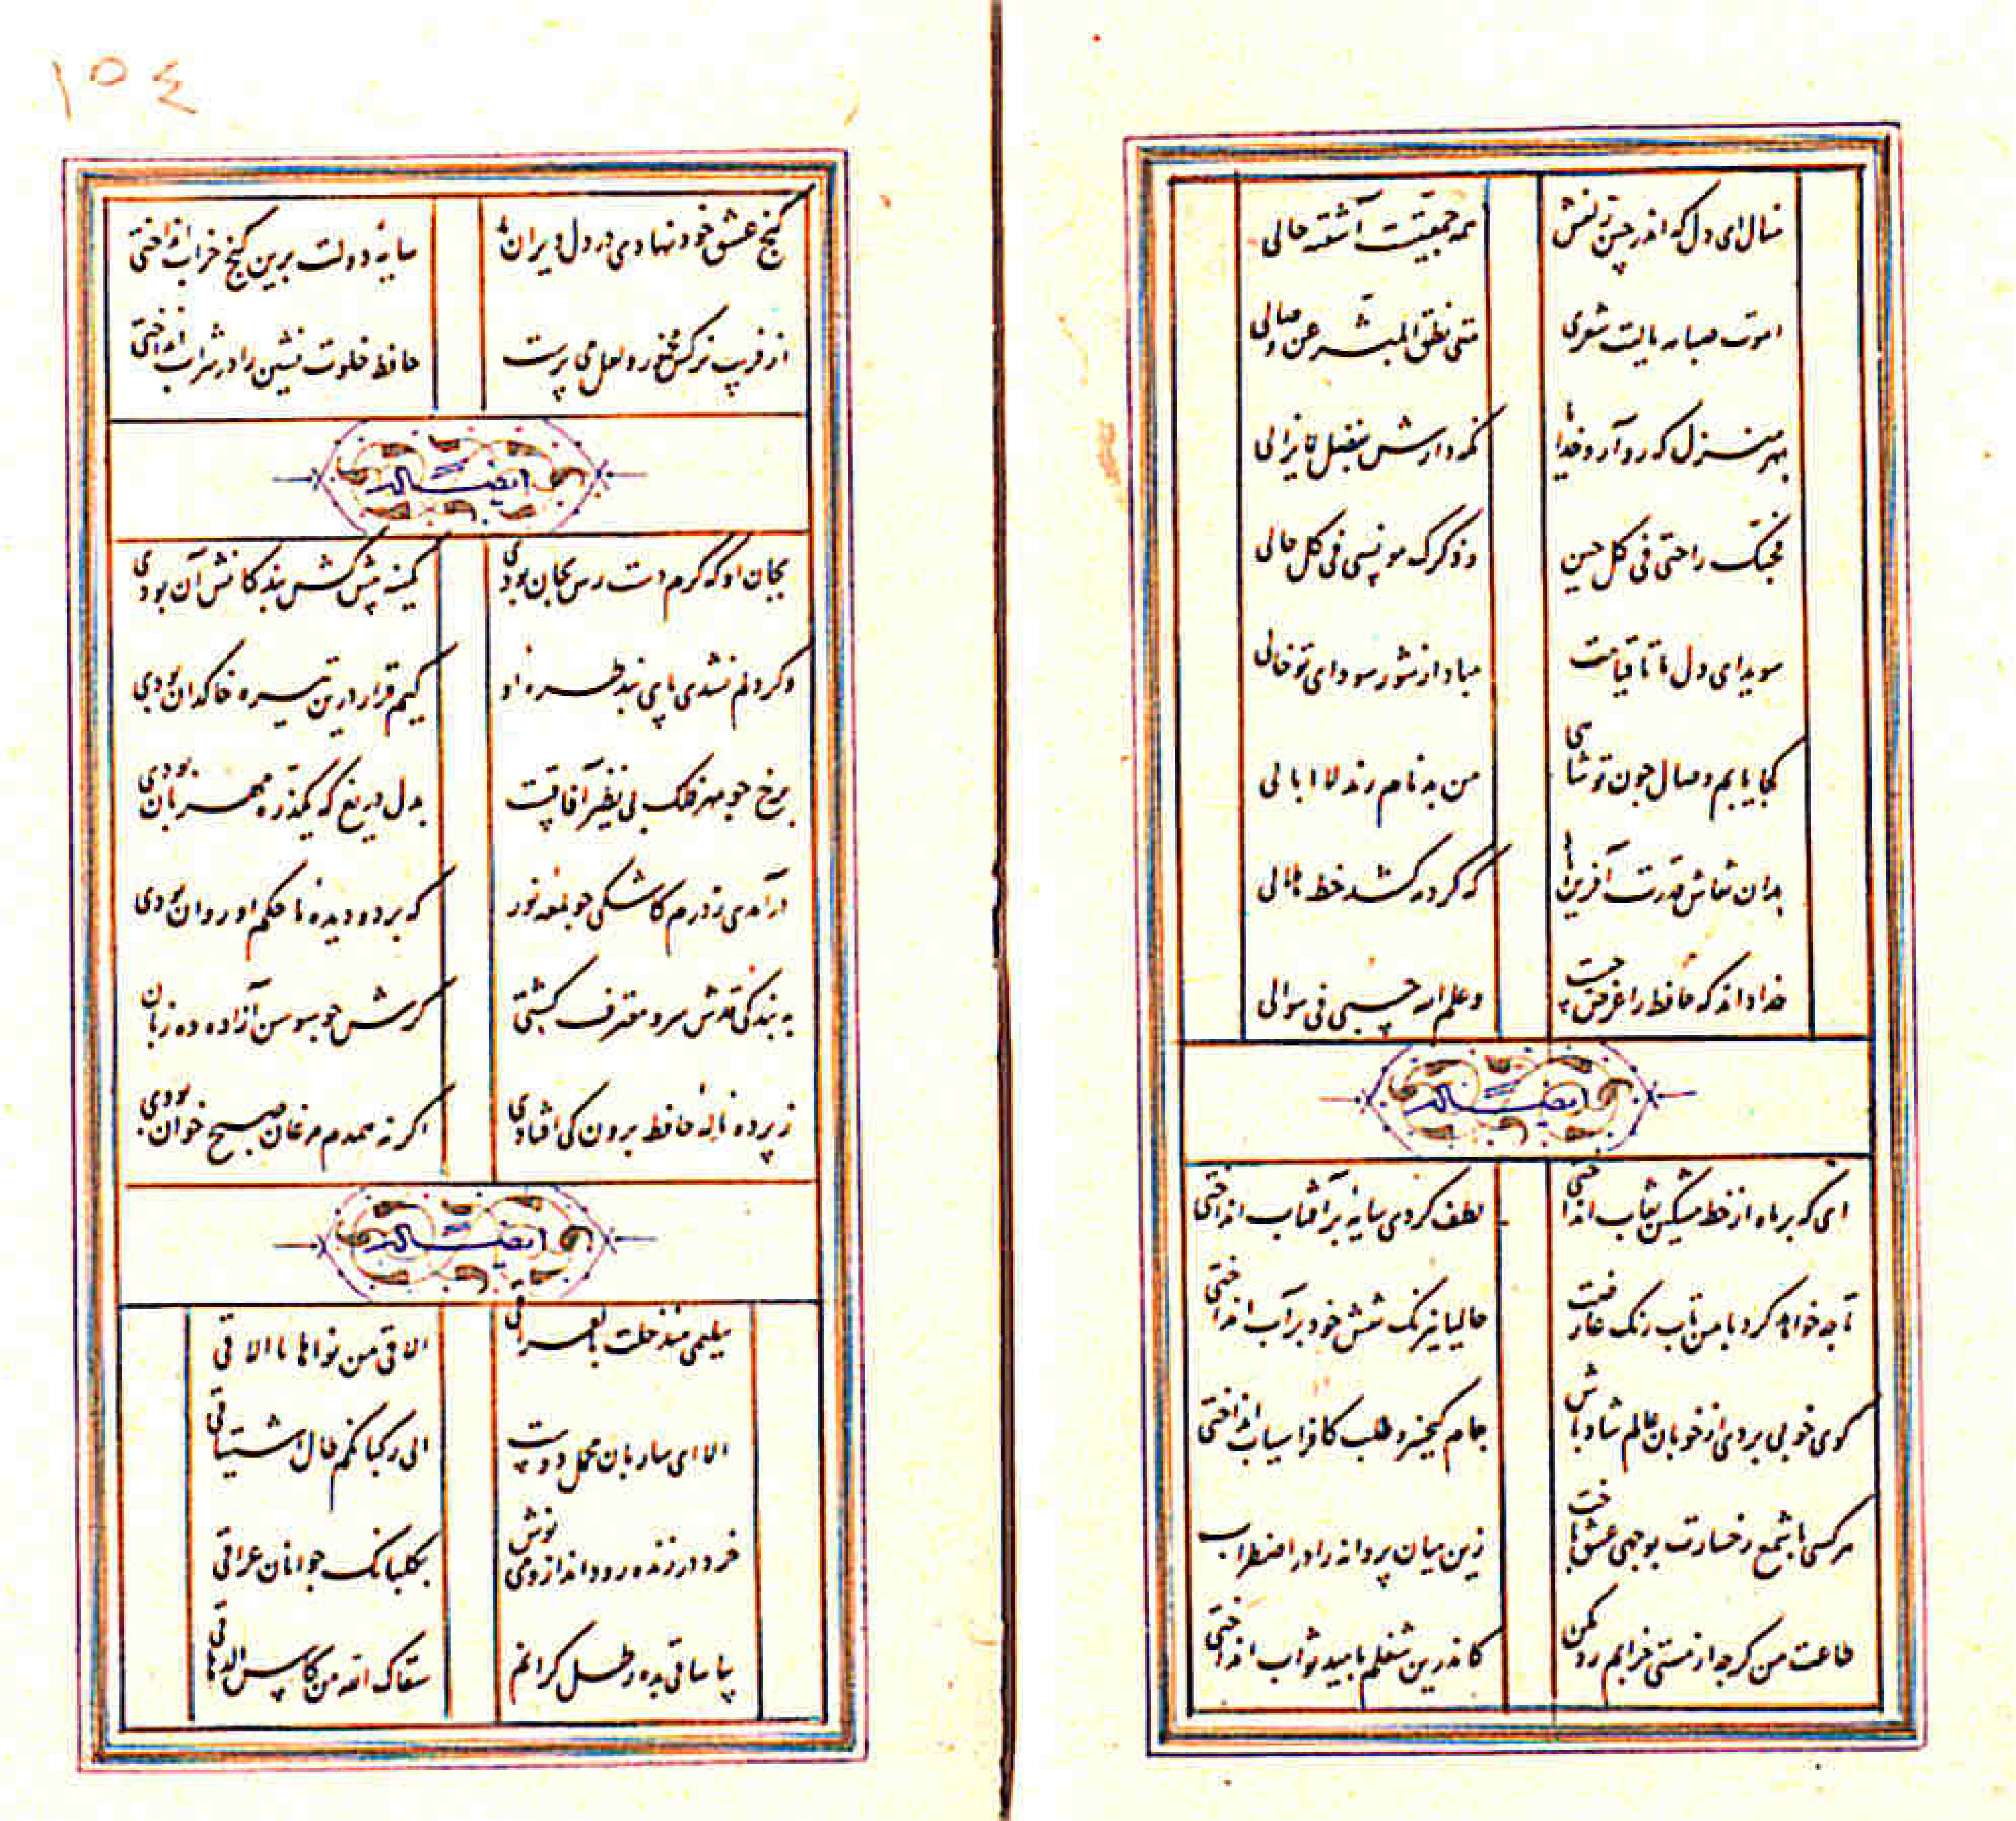 منال ای دل که اندر چین زلفش
همه جمعیتست آشفته حالی
اموت صبابه یا لیت شعری
متی نطق المبشر عن وصالی
بهر منزل که رو آرد خدا را
نکه دارش بفضل لایزالی
فحبک راحتی فی کل حین
و ذکرک مونسی فی کل حالی
سویدای دل ما تا قیامت
مباد از شور سودای تو خالی
کجا یابم وصال چون تو شاهی
من بدنام رند لاابالی
بدان نقاش قدرت آفرینها
که کرد مه کشد خط هلالی
خدا داند که حافظ را غرض چیست
و علم الله حسبی فی سوالی
ایضا له
ای که بر ماه از خط مشکین نقاب انداختی
لطف کردی سایهٔ بر آفتاب انداختی
تا چه خواهد کرد با من تاب رنک عارضت
حالیا نیرنک نقش خود بر آب انداختی
کوی خوبی بردی از خوبان عالم شاد باش
جام کیخسرو طلب کافراسیاب انداختی
هر کسی با شمع رخسارت بوجهی عشق باخت
زین میان پروانه را در اضطراب
طاعت من کرچه از مستی خرابم رد مکن
کاندرین شغلم بامید ثواب انداختی
١٥٤
کنج عشق خود نهادی در دل ویران ما
سایهٔ دولت برین کنج خراب انداختی
از فریب نرکس مخمور و لعل می پرست
حافظ خلوت نشین را در شراب انداختی
ایضا له
بجان او که کرم دست رس بجان بودی
کمینه پیش کش بندکانش آن بودی
و کر دلم نشدی پای بند طره او
کیم قرار درین تیره خاکدان بودی
برخ چو مهر فلک بی نظیر آفاقست
بدل دریغ که یکذره مهربان بودی
درآمدی ز درم کاشکی چو لمعه نور
که بر دو دیده ما حکم او روان بودی
به بندکی قدش سرو معترف کشتی
کرش چو سوسن آزاده ده زبان
ز پرده نالهٔ حافظ برون کی افتادی
اکر نه همدم مرغان صبح خوان بودی
ایضا له
سلیمی منذ حلت بالعراق
الاقی من نواها ما الاقی
الا ای ساربان محمل دوست
الی رکبانکم طال اشتیاقی
خرد در زنده رود انداز و می نوش
بکلبانک جوانان عراقی
بیا ساقی بده رطل کرانم
سقاک الله من کاس الدهاقی